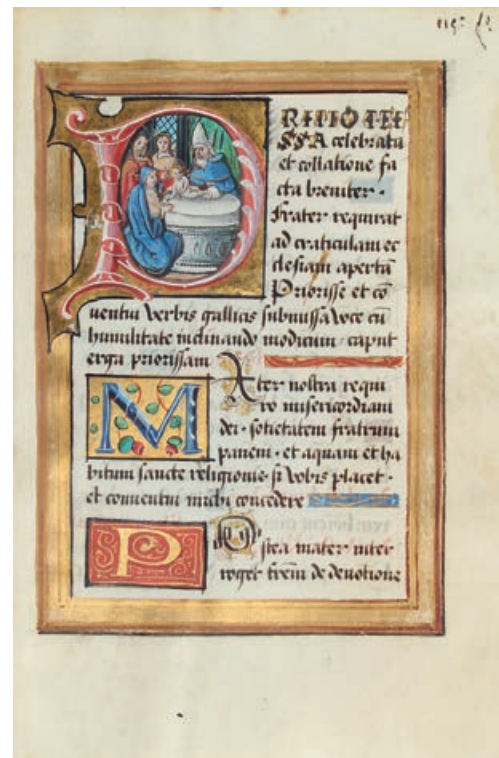 PRIMO MI
SSA celebrata
et collatione fa
cta breviter .
Frater requirat
ad craticulam ec
clesiam apertā
Priorisse et cō
ventui verbis gallicis submissa voce cū
humilitate inclinando modicum caput
erga priorissam
Mater nostra requi
ro misericordiam
dei . sotietatem fratrum
panem . et aquam et ha
bitum sancte religionis . si vobis placet .
et conventui michi concedere
Postea mater inter
roget frēm de devotione